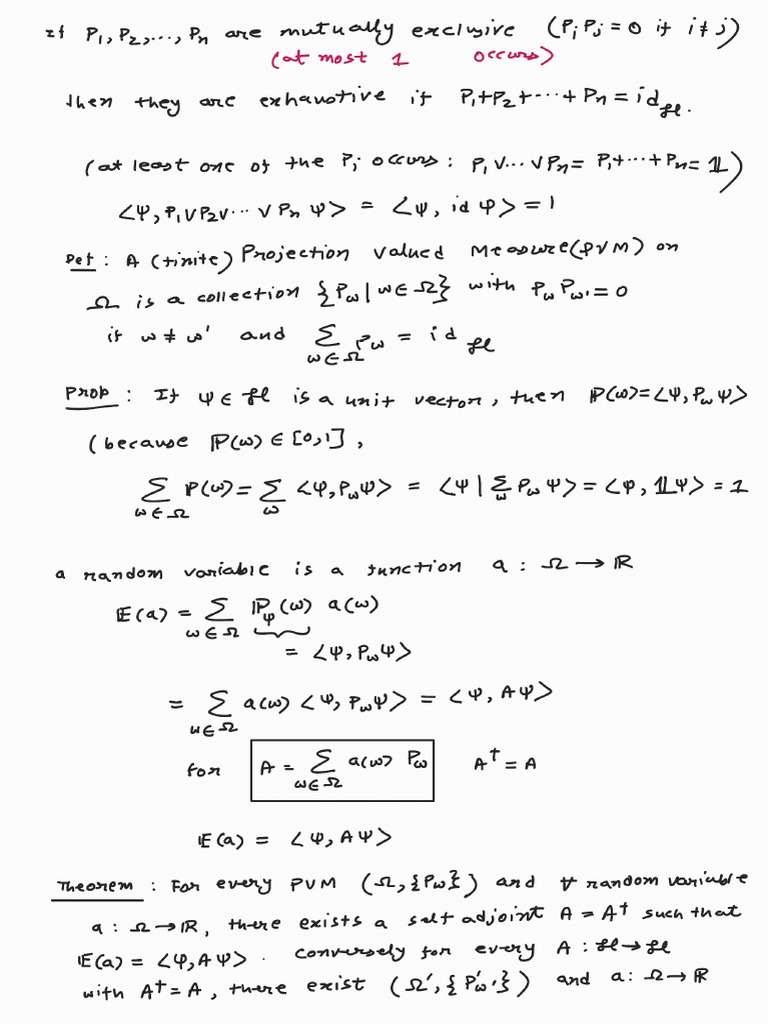 If P₁, P₂, ..., Pₙ are mutually exclusive (PᵢPⱼ = 0 if i ≠ j)
(at most 1 occurs)
Then they are exhaustive if P₁+P₂+···+Pₙ = id_ℋ.
(at least one of the Pⱼ occurs : P₁∨···∨Pₙ = P₁+···+Pₙ = 𝟙)
⟨ψ, P₁∨P₂∨···∨Pₙ ψ⟩ = ⟨ψ, id ψ⟩ = 1
Def : A (finite) Projection Valued Measure (PVM) on
Ω is a collection {P_ω | ω ∈ Ω} with P_ω P_ω' = 0
if ω ≠ ω' and Σ_{ω∈Ω} P_ω = id_ℋ
Prob : If ψ ∈ ℋ is a unit vector, then ℙ(ω) = ⟨ψ, P_ω ψ⟩
(because ℙ(ω) ∈ [0,1],
Σ_{ω∈Ω} ℙ(ω) = Σ_ω ⟨ψ, P_ω ψ⟩ = ⟨ψ | Σ_ω P_ω ψ⟩ = ⟨ψ, 𝟙ψ⟩ = 1
a random variable is a function a : Ω → ℝ
𝔼(a) = Σ_{ω∈Ω} ℙ_ψ(ω) a(ω)
= ⟨ψ, P_ω ψ⟩
= Σ_{ω∈Ω} a(ω) ⟨ψ, P_ω ψ⟩ = ⟨ψ, Aψ⟩
for A = Σ_{ω∈Ω} a(ω) P_ω A† = A
𝔼(a) = ⟨ψ, Aψ⟩
Theorem : For every PVM (Ω, {P_ω}) and ∀ random variable
a : Ω → ℝ, there exists a self adjoint A = A† such that
𝔼(a) = ⟨ψ, Aψ⟩. conversely for every A : ℋ → ℋ
with A† = A, there exist (Ω', {P'_ω'}) and a : Ω → ℝ